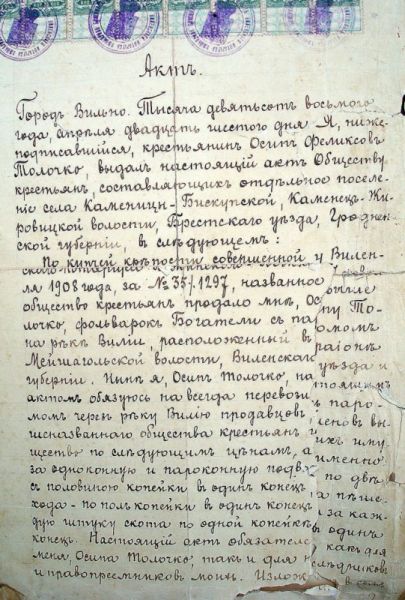 Актъ.
Городъ Вильно. Тысяча девятьсотъ восьмого
года, апрѣля двадцать шестого дня Я, ниже-
подписавшійся, крестьянинъ Осипъ Феликсовъ
Толочко, выдалъ настоящій актъ Обществу
крестьянъ, составляющихъ отдѣльное поселе-
ніе села Каменицы-Бискупской, Каменецъ-Жи-
ровицкой волости, Брестскаго уѣзда, Гроднен-
ской губерніи, въ слѣдующемъ:
По купчей крѣпости совершенной у Вилен-
ля 1908 года, за № 35/1297, названное
общество крестьянъ продало мнѣ, То-
лочко, фольварокъ Богатели съ па ромомъ
на рѣкѣ Виліи, расположенный въ районѣ
Мейшагольской волости, Виленскаго уѣзда и
губерніи. Нынѣ я, Осипъ Толочко, на стоящимъ
актомъ обязуюсь на всегда перевозить паро-
момъ черезъ рѣку Вилію продавцовъ вы
шеназваннаго общества крестьянъ и ихъ иму
щество по слѣдующимъ цѣнамъ, а именно
за одноконную и пароконную подводу по двѣ
съ половиною копейки въ одинъ конецъ, за пѣше-
хода - по полъ копейки въ одинъ конецъ и за каж-
дую штуку скота по одной копейкѣ въ одинъ
конецъ. Настоящій актъ обязателенъ какъ для
меня, Осипа Толочко, такъ и для наслѣдниковъ
и правопреемниковъ моихъ. въ семъ